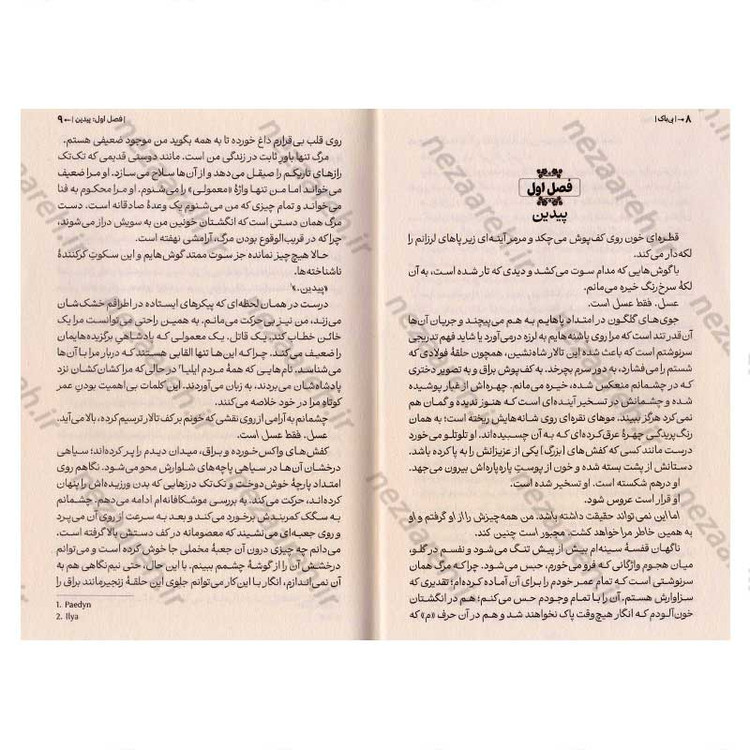 ۸ ← | بی‌باک |
فصل اول
پیدین
قطره‌ای خون روی کف‌پوش می‌چکد و مرمر آینه‌ای زیر پاهای لرزانم را
لکه‌دار می‌کند.
با گوش‌هایی که مدام سوت می‌کشد و دیدی که تار شده است، به آن
لکهٔ سرخ‌رنگ خیره می‌مانم.
عسل. فقط عسل است.
جوی‌های گلگون در امتداد پاهایم به هم می‌پیچند و جریان آن‌ها
آن‌قدر تند است که مرا روی پاشنه‌هایم به لرزه درمی‌آورد یا شاید فهم تدریجی
سرنوشتم است که باعث شده این تالار شاه‌نشین، همچون حلقهٔ فولادی که
شستم را می‌فشارد، به دور سرم بچرخد. به کف‌پوش براق و به تصویر دختری
که در چشمانم منعکس شده، خیره می‌مانم. چهره‌اش از غبار پوشیده
شده و چشمانش در تسخیر آینده‌ای است که هنوز ندیده و گمان هم
نمی‌کرد هرگز ببیند. موهای نقره‌ای روی شانه‌هایش ریخته است؛ به همان
رنگ‌پریدگی چهرهٔ عرق‌کرده‌ای که به آن چسبیده‌اند. او تلوتلو می‌خورد
درست مانند کسی که کفش‌های (بزرگِ) یکی از عزیزانش را به پا کرده باشد.
دستانش از پشت بسته شده و خون از پوستِ پاره‌پاره‌اش بیرون می‌جهد.
او درهم شکسته است. او تسخیر شده است.
او قرار است عروس شود.
اما این نمی‌تواند حقیقت داشته باشد. من همه‌چیزش را از او گرفتم و او
به همین خاطر مرا خواهد کشت. مجبور است چنین کند.
ناگهان قفسهٔ سینه‌ام بیش از پیش تنگ می‌شود و نفسم در گلو،
میان هجوم واژگانی که فرو می‌خورم، حبس می‌شود. چراکه مرگ همان
سرنوشتی است که تمام عمر خودم را برای آن آماده کرده‌ام؛ تقدیری که
سزاوارش هستم. آن را با تمام وجودم حس می‌کنم؛ هم در انگشتان
خون‌آلودم که انگار هیچ‌وقت پاک نخواهند شد و هم در آن حرف «م» که
| فصل اول: پیدین | → ۹
روی قلب بی‌قرارم داغ خورده تا به همه بگوید من موجود ضعیفی هستم.
مرگ تنها باورِ ثابت در زندگی من است. مانند دوستی قدیمی که تک‌تک
رازهای تاریکم را صیقل می‌دهد و از آن‌ها سلاح می‌سازد. او مرا ضعیف
می‌خواند اما من تنها واژهٔ «معمولی» را می‌شنوم. او مرا محکوم به فنا
می‌خواند و تمام چیزی که من می‌شنوم یک وعدهٔ صادقانه است. دست
مرگ همان دستی است که انگشتان خونین من به سویش دراز می‌شوند،
چراکه در قریب‌الوقوع بودن مرگ، آرامشی نهفته است.
حالا هیچ‌چیز نمانده جز سوت ممتد گوش‌هایم و این سکوتِ کرکنندهٔ
ناشناخته‌ها.
«پیدین.»¹
درست در همان لحظه‌ای که پیکرهای ایستاده در اطرافم خشک‌شان
می‌زند، من نیز بی‌حرکت می‌مانم. به همین راحتی می‌توانست مرا یک
خائن خطاب کند. یک قاتل. یک معمولی که پادشاهیِ برگزیده‌هایمان
را ضعیف می‌کند. چراکه این‌ها تنها القابی هستند که دربار مرا با آن‌ها
می‌شناسد. نام‌هایی که همهٔ مردم ایلیا² در حالی که مرا کشان‌کشان نزد
پادشاه‌شان می‌بردند، به زبان می‌آوردند. این کلمات بی‌اهمیت بودنِ عمر
کوتاه مرا در خود خلاصه می‌کنند.
چشمانم به آرامی از روی نقشی که خونم بر کف تالار ترسیم کرده، بالا می‌آید.
عسل. فقط عسل است.
کفش‌های واکس‌خورده و براق، میدان دیدم را پر کرده‌اند؛ سیاهی
درخشان آن‌ها در سیاهی پاچه‌های شلوارش محو می‌شود. نگاهم روی
امتداد پارچهٔ خوش‌دوخت و تک‌تک درزهایی که بدن ورزیده‌اش را پنهان
کرده‌اند، حرکت می‌کند. به بررسی موشکافانه‌ام ادامه می‌دهم. چشمانم
به سگک کمربندش برخورد می‌کند و بعد به سرعت از روی آن می‌پرد
و روی جعبه‌ای می‌نشیند که معصومانه در کف دستش بالا گرفته است.
می‌دانم چه چیزی درون آن جعبهٔ مخملی جا خوش کرده است و می‌توانم
درخشش آن را از گوشهٔ چشمم ببینم. با این حال، حتی نیم‌نگاهی هم به
آن نمی‌اندازم، انگار با این کار می‌توانم جلوی این حلقهٔ زنجیرمانندِ براق را
1. Paedyn
2. Ilya
nezaareh.ir